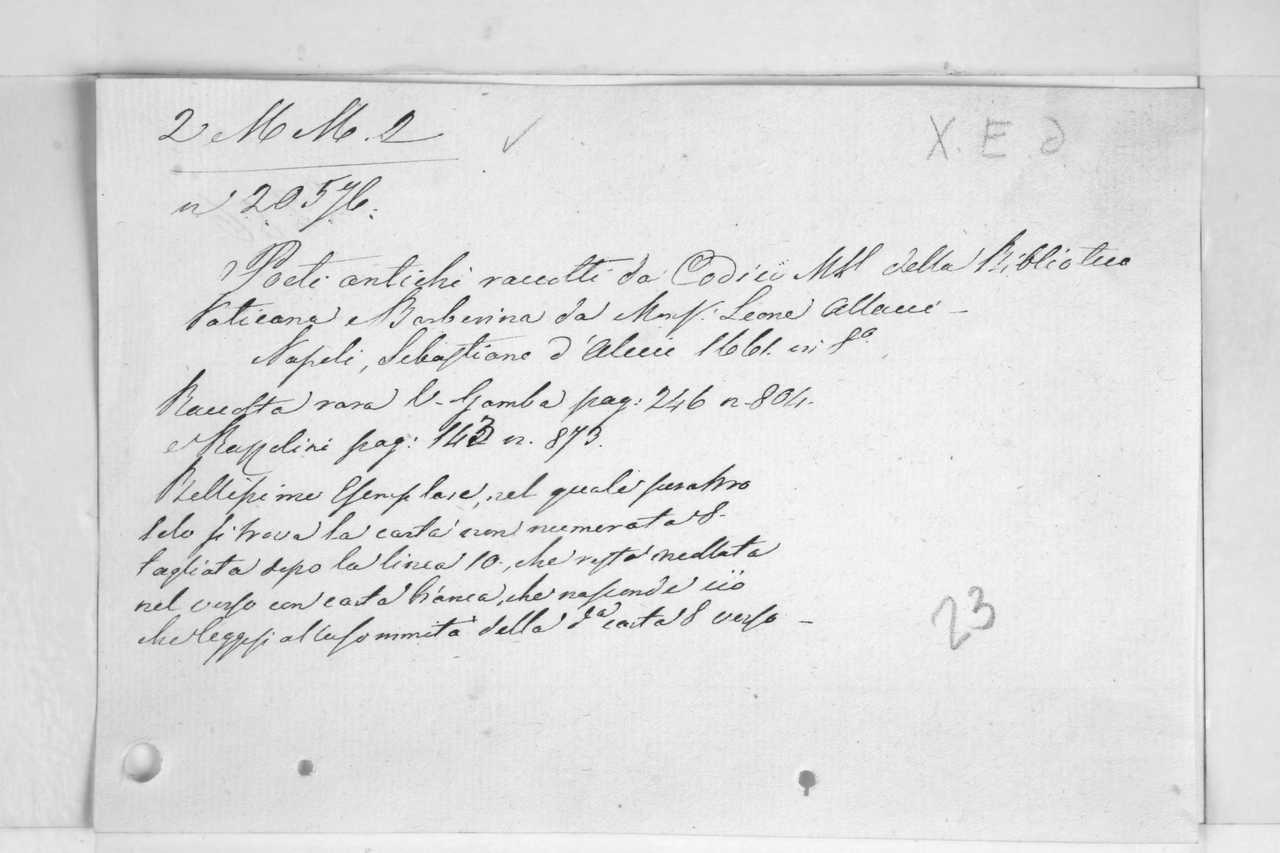 2 M M. 2
X. E. d
n° 20576.
Poeti antichi raccolti da Codici MSS. della Biblioteca
Vaticana e Barberina da Monsr. Leone Allacci –
Napoli, Sebastiano d'Alecci 1661. in 8°.
Raccolta rara V. Gamba pag: 246 n. 804.
e Razzolini pag: 143 n. 873.
Bellissimo Esemplare, nel quale peraltro
solo si trova la carta non numerata 8.
tagliata dopo la linea 10., che resta
nel verso con carta bianca, che nasconde ciò
che leggesi alla sommità della da carta 8 verso –
23